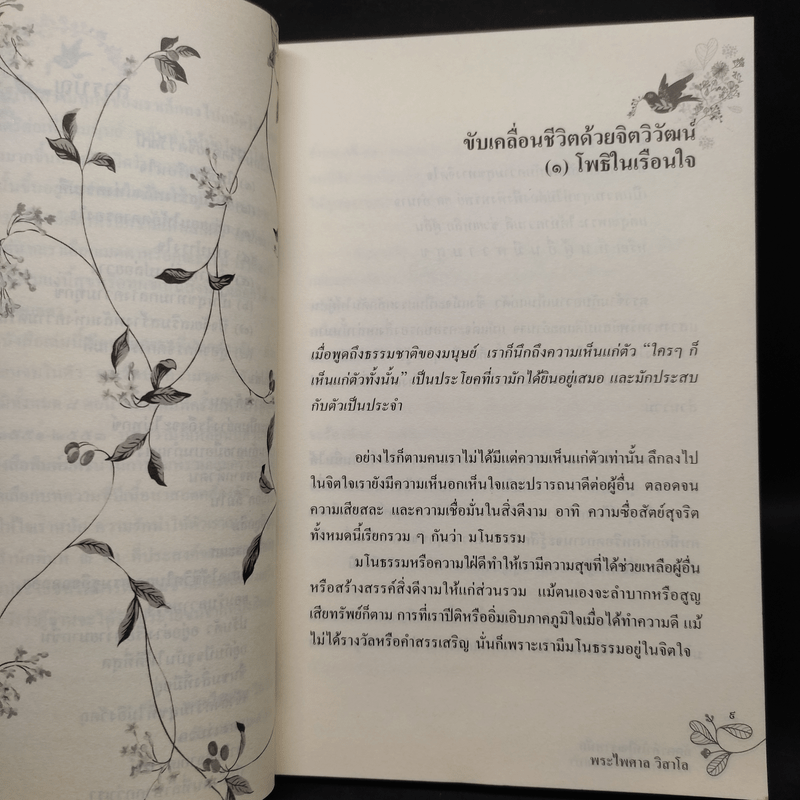 ขับเคลื่อนชีวิตด้วยจิตวิวัฒน์
(๑) โพธิในเรือนใจ
เมื่อพูดถึงธรรมชาติของมนุษย์ เราก็นึกถึงความเห็นแก่ตัว “ใครๆ ก็
เห็นแก่ตัวทั้งนั้น” เป็นประโยคที่เรามักได้ยินอยู่เสมอ และมักประสบ
กับตัวเป็นประจำ
อย่างไรก็ตามคนเราไม่ได้มีแต่ความเห็นแก่ตัวเท่านั้น ลึกลงไป
ในจิตใจเรายังมีความเห็นอกเห็นใจและปรารถนาดีต่อผู้อื่น ตลอดจน
ความเสียสละ และความเชื่อมั่นในสิ่งดีงาม อาทิ ความซื่อสัตย์สุจริต
ทั้งหมดนี้เรียกรวม ๆ กันว่า มโนธรรม
มโนธรรมหรือความใฝ่ดีทำให้เรามีความสุขที่ได้ช่วยเหลือผู้อื่น
หรือสร้างสรรค์สิ่งดีงามให้แก่ส่วนรวม แม้ตนเองจะลำบากหรือสูญ
เสียทรัพย์ก็ตาม การที่เราปีติหรืออิ่มเอิบภาคภูมิใจเมื่อได้ทำความดี แม้
ไม่ได้รางวัลหรือคำสรรเสริญ นั่นก็เพราะเรามีมโนธรรมอยู่ในจิตใจ
๕
พระไพศาล วิสาโล